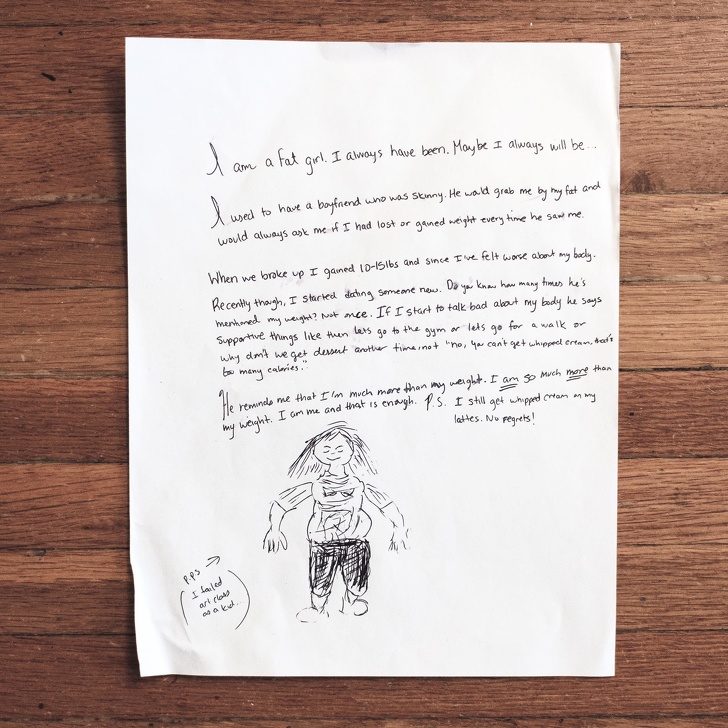 I am a fat girl. I always have been. Maybe I always will be...
I used to have a boyfriend who was skinny. He would grab me by my fat and
would always ask me if I had lost or gained weight every time he saw me.
When we broke up I gained 10-15lbs and since I've felt worse about my body.
Recently though, I started dating someone new. Do you know how many times he's
mentioned my weight? Not once. If I start to talk bad about my body he says
supportive things like then lets go to the gym or lets go for a walk or
why don't we get dessert another time, not "no, you can't get whipped cream, that's
too many calories."
He reminds me that I'm much more than my weight. I am so much more than
my weight. I am me and that is enough. P.S. I still get whipped cream on my
lattes. No regrets!
P.P.S →
(I failed
art class
as a kid...)